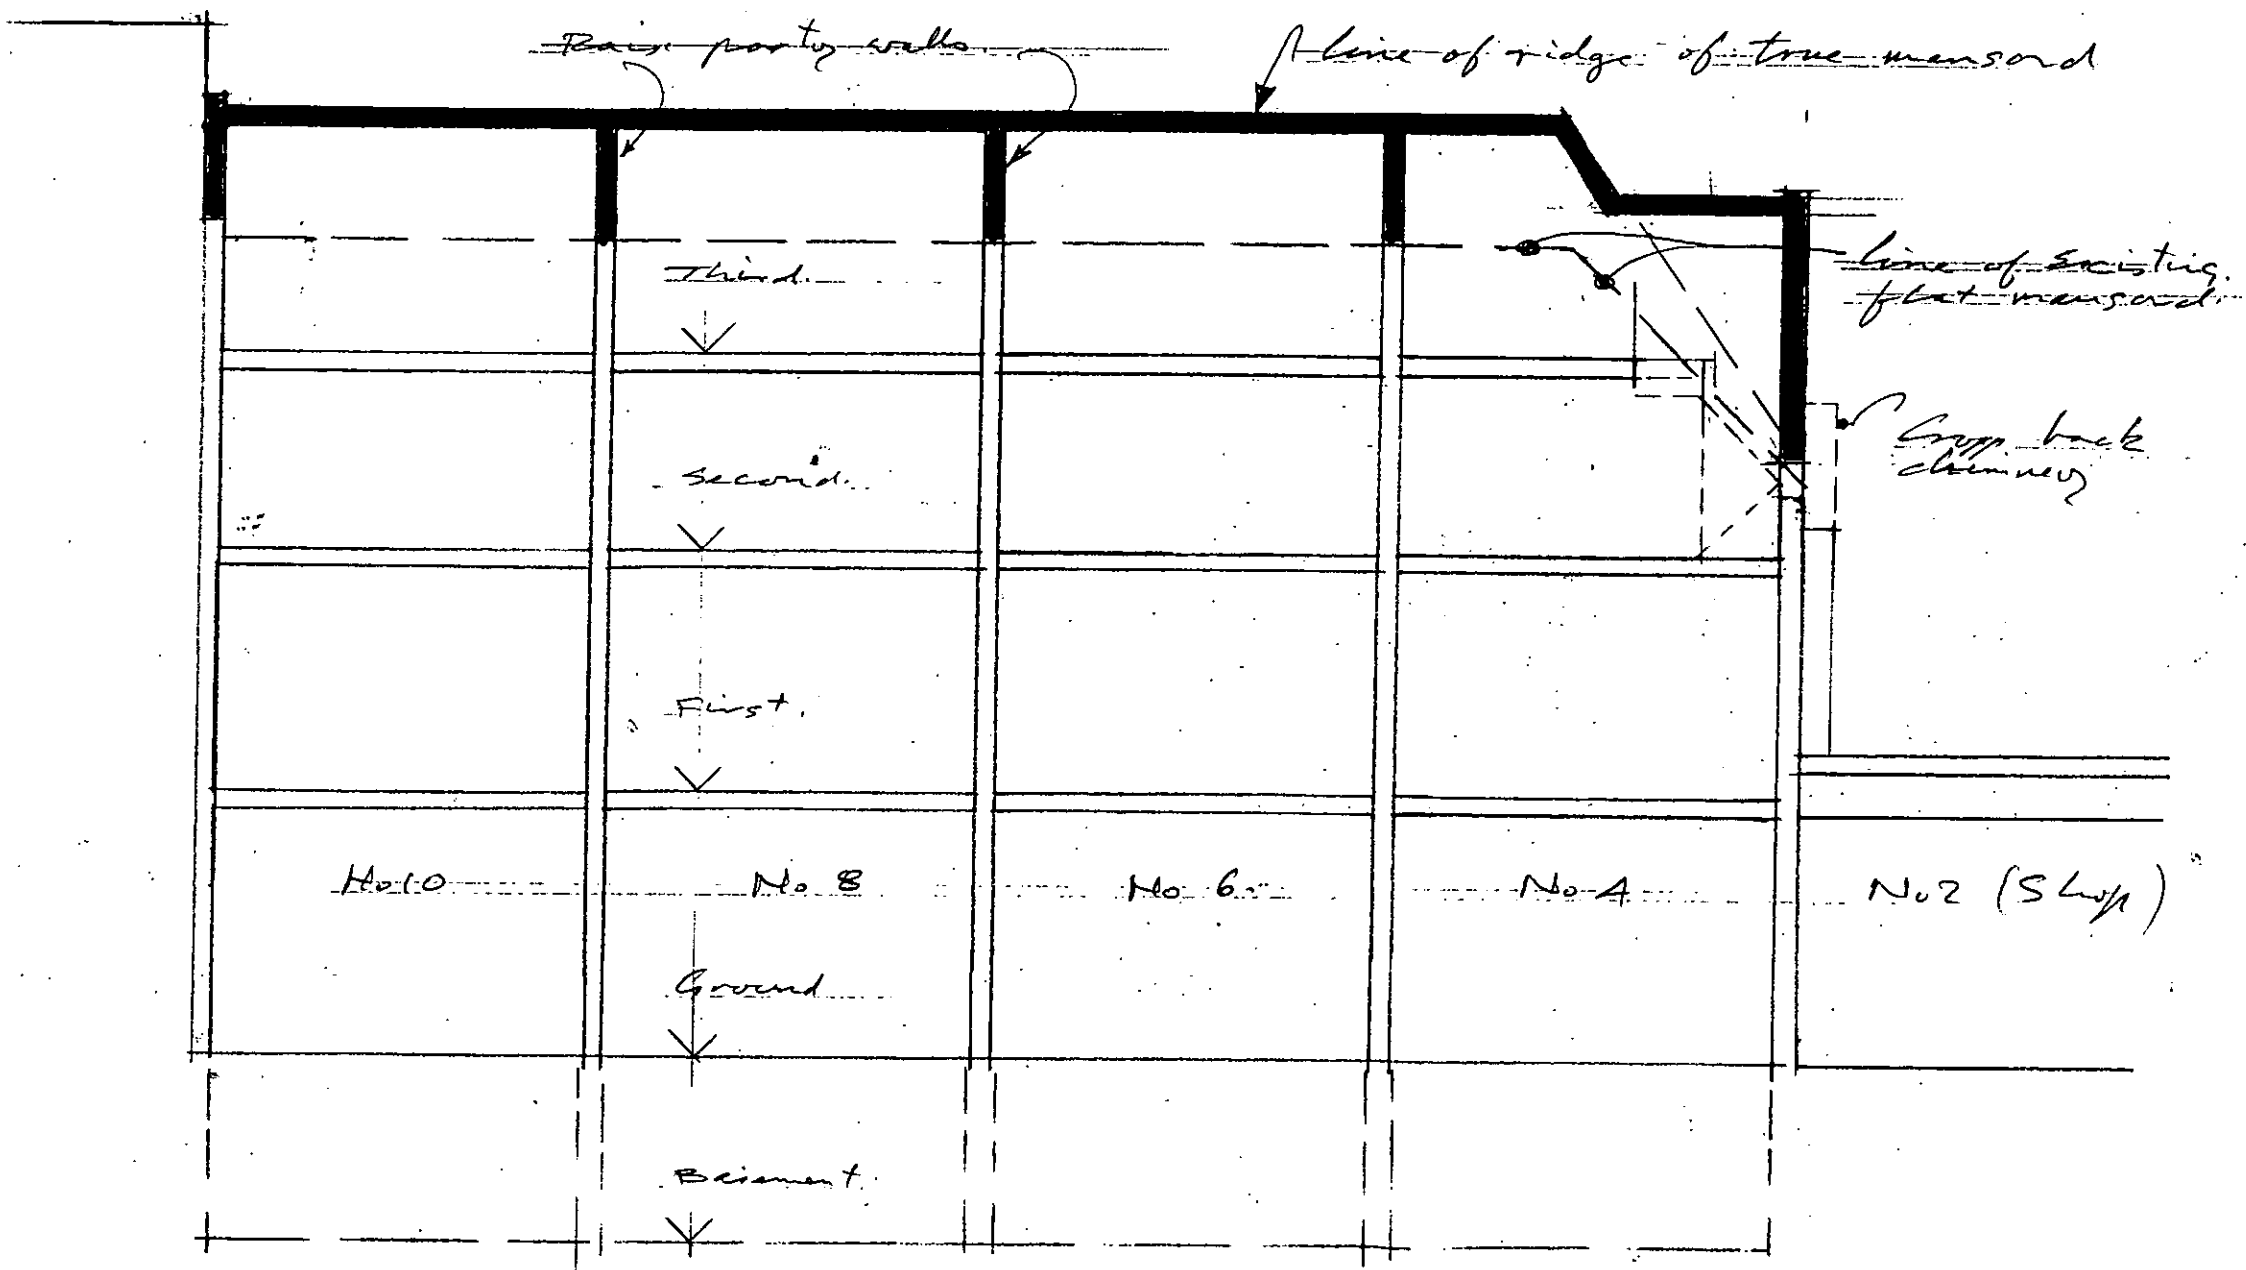 Raise party walls.
line of ridge of true mansard
Third.
line of existing.
flat mansard.
Crop back
chimney
Second.
First.
No 10
No 8
No 6
No 4
No 2 (Shop)
Ground
Basement.